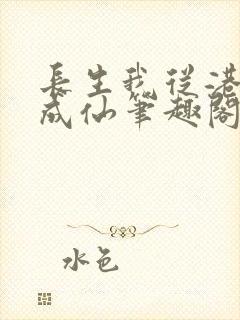 長生我從港
成仙筆趣閣
水色